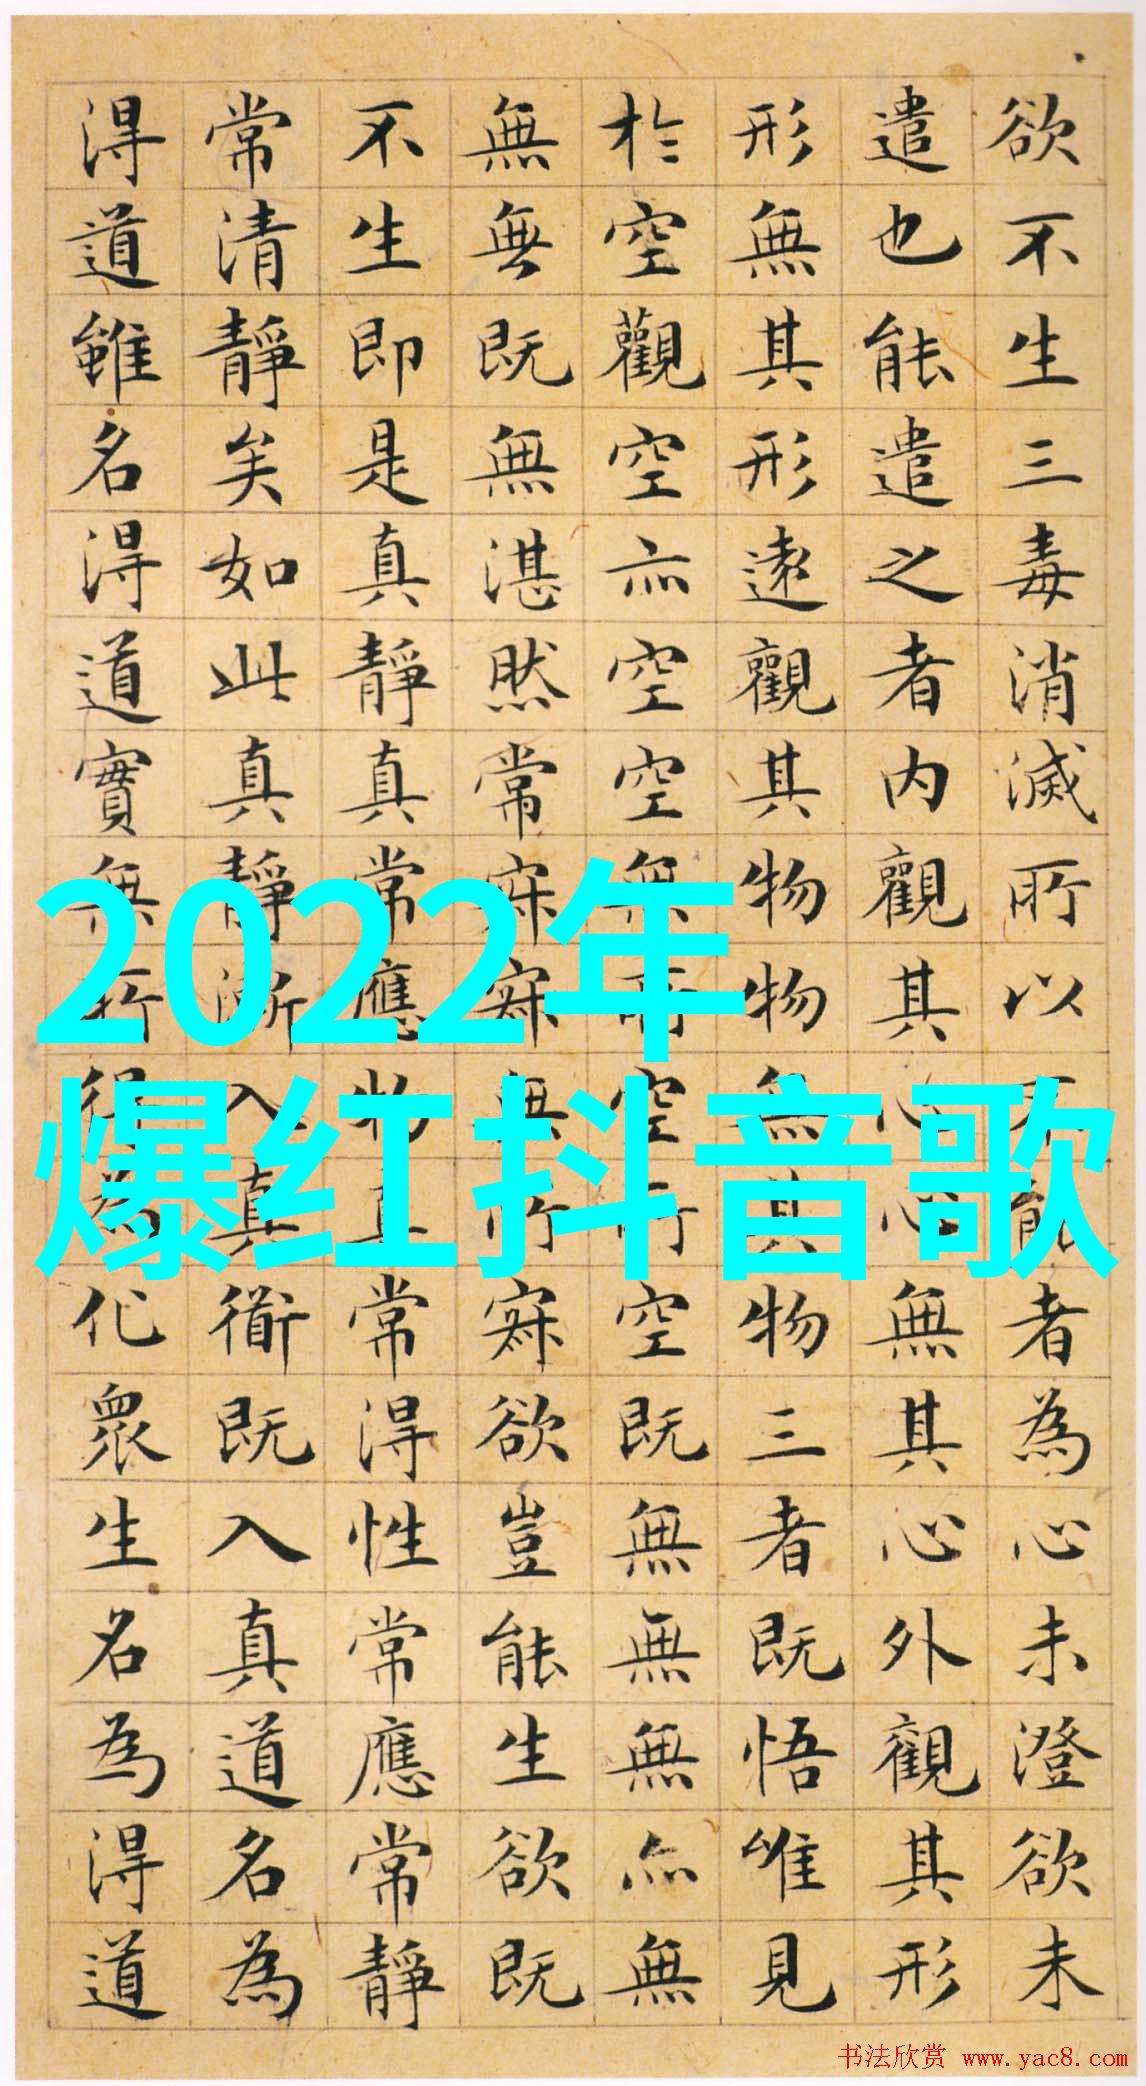 欲不生三毒消滅所以不能者為心未澄欲未
遣也能遣之者内觀其心心無其心外觀其形
形無其形遠觀其物物無其物三者既悟唯見
於空觀空亦空空無所空所空既無無無亦無
無無既無湛然常寂寂無所寂欲豈能生欲既
不生即是真靜真常應物真常得性常應常靜
常清靜矣如此真靜漸入真衜既入真道名為
得道雖名得道實無所得為化眾生名為得道
2022年
爆红抖音歌
书法欣赏 www.yac8.com